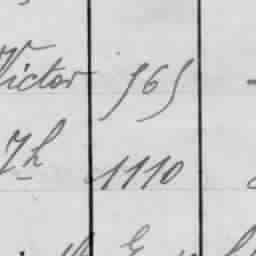 Victor 565
7h 1110